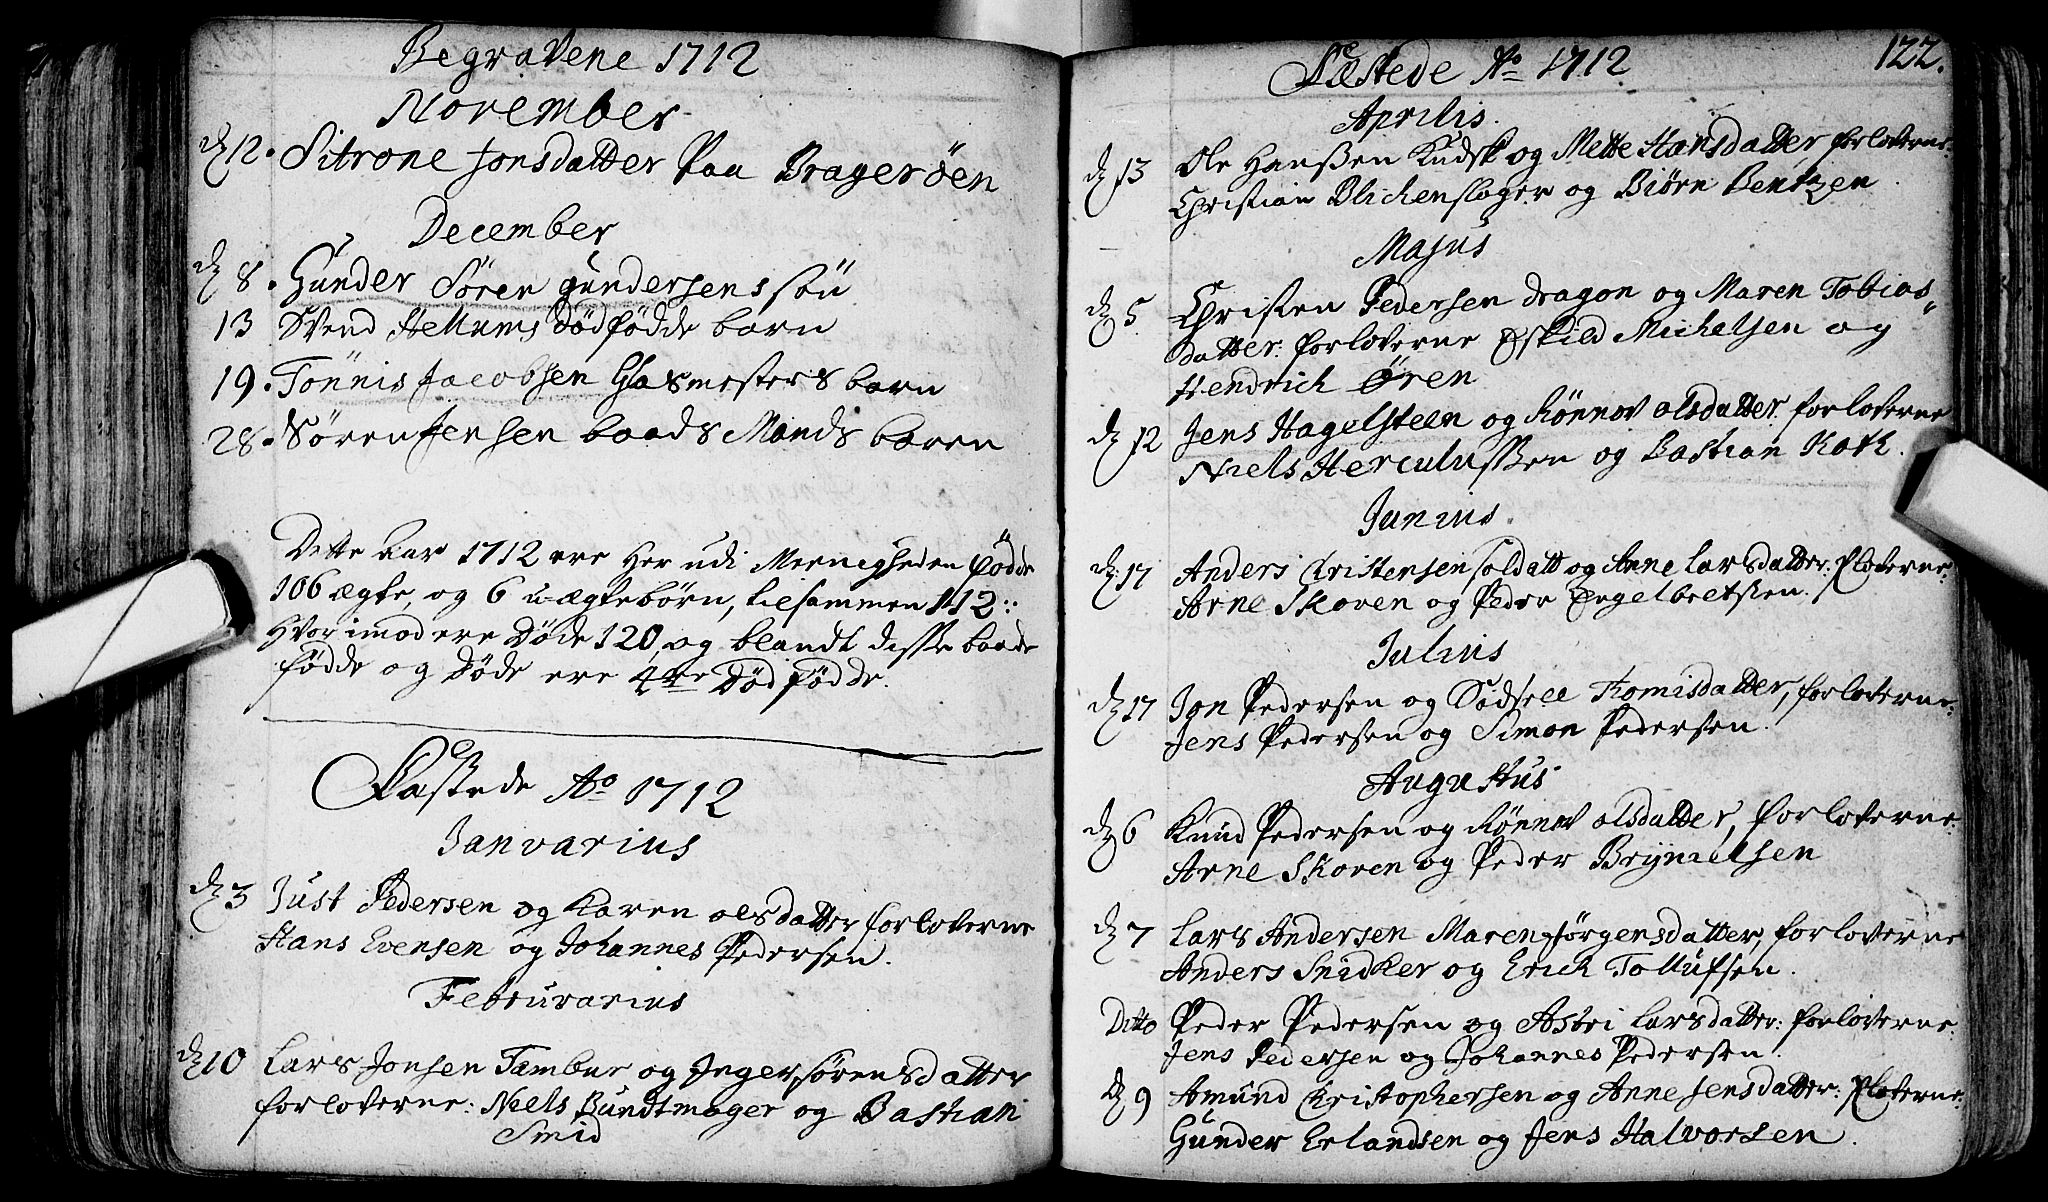 Begravene 1712
November
d 12. Sitrone Jonsdatter Paa Brageröen
December
d 8. Gunder Sören gundersens sön
13 Svend Hellums Dödfödde barn
19. Tönnis Jacobsen Glasmesters barn
28. Sören Jensen baads Mands baren
Dette aar 1712 ere Her udi Meenigheden födde
106 ægte, og 6 uægtebörn, tilsammen 112:
Hvor imod ere Døde 120, og blandt disse baade
födde og Døde ere 4re Död födde.
Fæstede Ao 1712
Janvarius
d 3 Just Pedersen og Karen olsdatter forloverne
Hans Evensen og Johannes Pedersen.
Februvarius
d 10 Lars Jonsen Tambur og Inger sørensdatter
forloverne: Niels Bundtmager og Bastian
Smid
Fæstede Ao 1712
122.
Aprilis.
d 13 Ole Hanßen Kudsk og Mette Hansdatter forloverne:
Christian Blichenslager og Biørn Bentzen
Majus
d 5 Christen Pedersen dragon og Maren Tobias
datter: forloverne Eskild Michelsen og
Hendrich Ören
d 12 Jens Hagelsteen og Rønnov olsdatter: forloverne
Niels Herculussen og Bastian Koch.
Junius.
d 17 Anders Christensen soldatt og Anne Larsdatter: floverne:
Arne Skoven og Peder Engelbretsen.
Julius
d 17 Jon Pedersen og Sidsell Thomisdatter, forloverne:
Jens Pedersen og Simon Pedersen.
Augustus
d 6 Knud Pedersen og Rønnov olsdatter, forloverne:
Arne Skoven og Peder Brynielsen
d 7 Lars Andersen Maren Jørgensdatter, forloverne
Anders Snidker og Erich Tollufsen.
Ditto Peder Pedersen og Astri Larsdatter: forloverne:
Jens Pedersen og Johannes Pedersen.
d 9 Amund Christophersen og Anne Jensdatter: floverne:
Gunder Erlandsen og Jens Halvorsen.